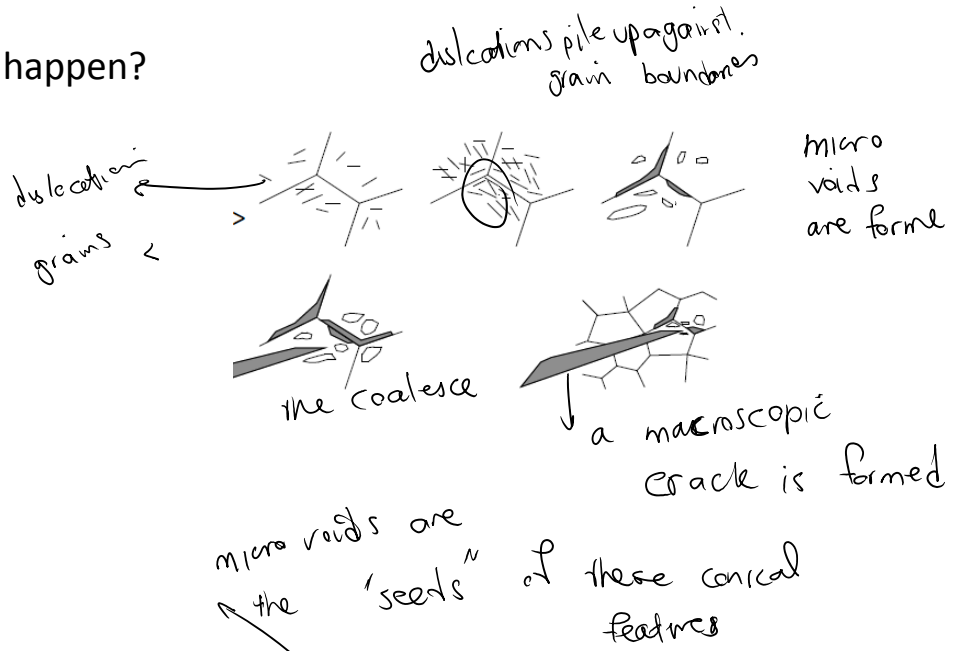 happen?
dislcations pile up against
grain boundaries
dislocation
grains <
>
micro
voids
are forme
the coalesce
a macroscopic
crack is formed
micro voids are
the "seeds" of these conical
features